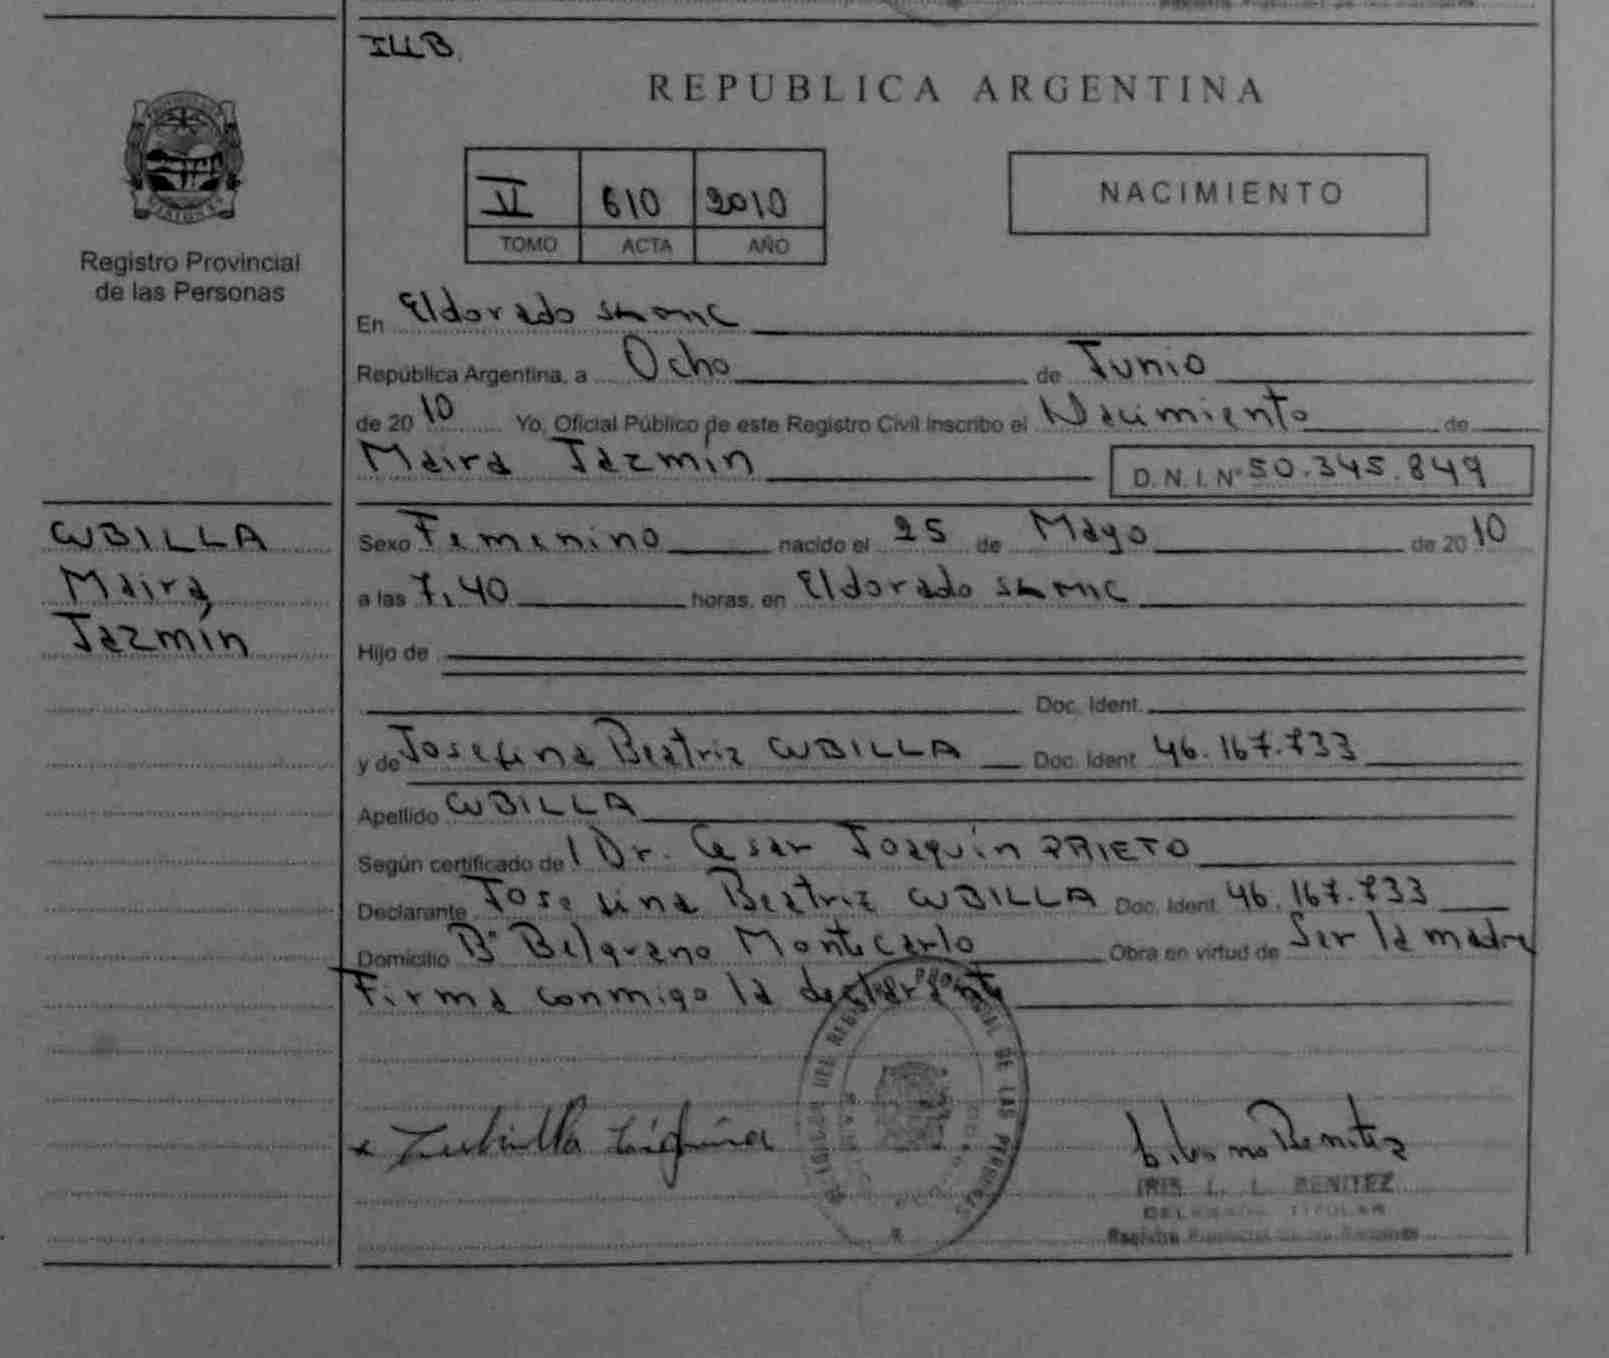 ILLB.
REPUBLICA ARGENTINA
NACIMIENTO
610 2010
TOMO ACTA AÑO
Registro Provincial
de las Personas
En Eldorado
República Argentina, a Ocho de Junio
de 20 10 Yo, Oficial Público de este Registro Civil Inscribo el Nacimiento de
Maira Jazmín D.N.I. Nº 50.345.849
CUBILLA
Maira
Jazmín
Sexo Femenino nacido el 25 de Mayo de 20 10
a las 7,40 horas, en Eldorado
Hijo de
Doc. Ident.
y de Josefina Beatriz CUBILLA Doc. Ident. 46.167.733
Apellido CUBILLA
Según certificado de l Dr. Cesar Joaquín PRIETO
Declarante Josefina Beatriz CUBILLA Doc. Ident. 46.167.733
Domicilio Bº Belgrano Montecarlo Obra en virtud de Ser la madre
Firma conmigo la declarante
DE LAS PERSONAS
IRIS L. L. BENITEZ
DELEGADA TITULAR
Registro Provincial de las Personas